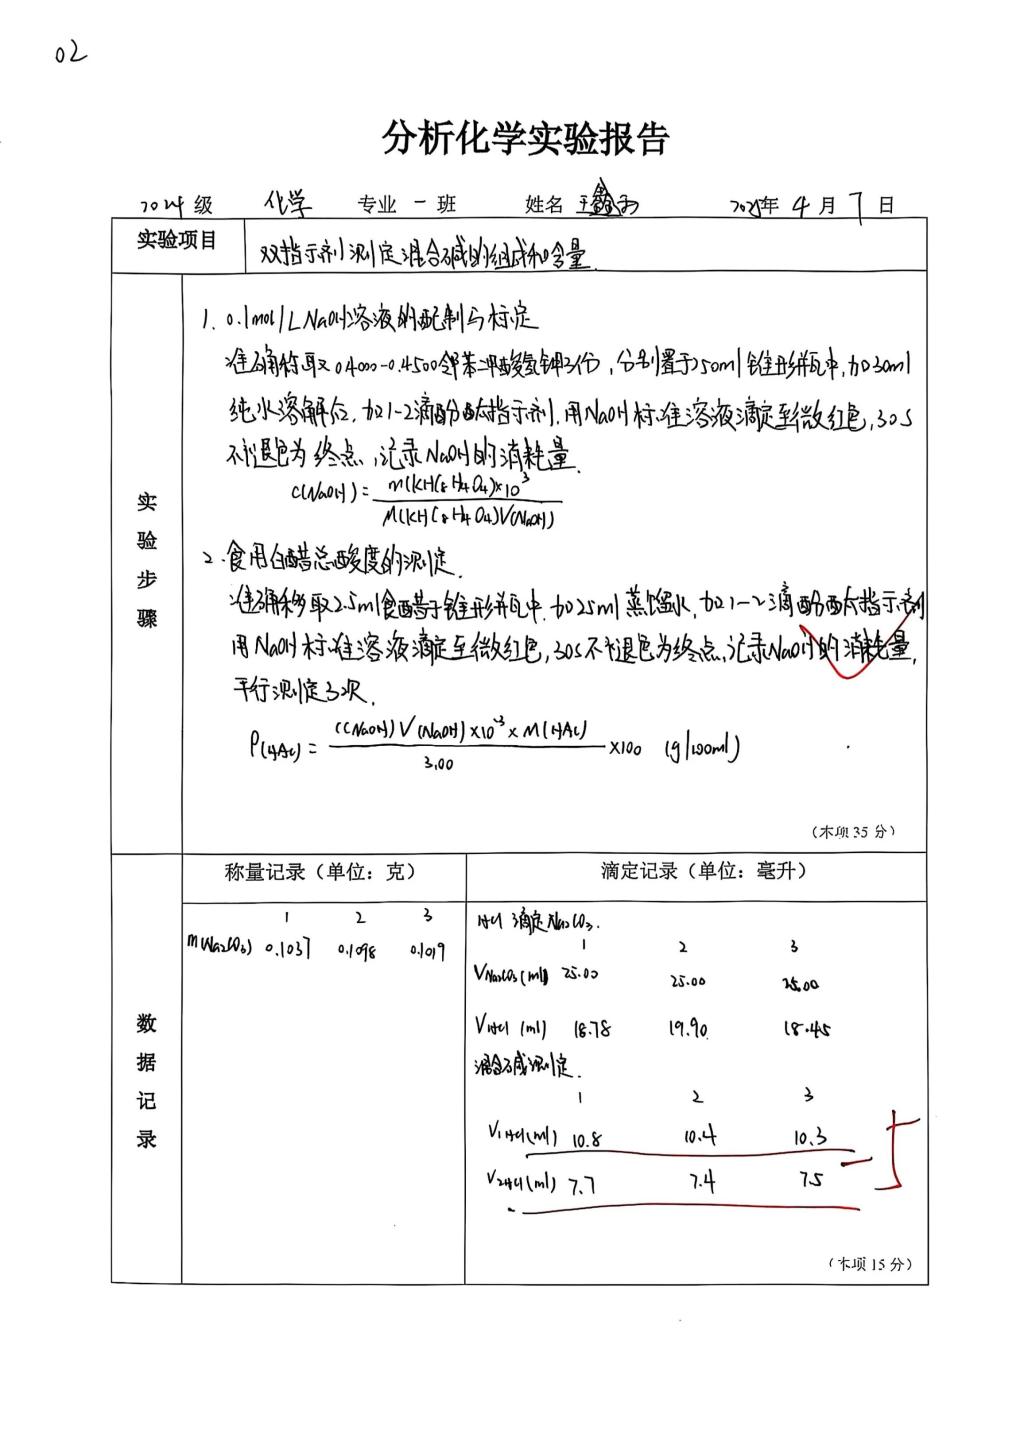 02
分析化学实验报告
2024级 化学 专业 一 班 姓名 王鑫 2025年 4 月 7 日
实验项目 双指示剂测定混合碱的组成和含量.
实验步骤
1. 0.1mol/L NaOH溶液的配制与标定
准确称取0.4000-0.4500邻苯二甲酸氢钾3份,分别置于250ml锥形瓶中,加30ml
纯水溶解后,加1-2滴酚酞指示剂,用NaOH标准溶液滴定至微红色,30S
不褪色为终点,记录NaOH的消耗量.
C(NaOH) = m(KHC8H4O4)×10³ / M(KHC8H4O4)V(NaOH)
2.食用白醋总酸度的测定.
准确移取2.5ml食醋于锥形瓶中.加25ml蒸馏水,加1-2滴酚酞指示剂
用NaOH标准溶液滴定至微红色,30S不褪色为终点,记录NaOH的消耗量,
平行测定3次.
ρ(HAc) = C(NaOH)V(NaOH)×10⁻³×M(HAc) / 3.00 ×100 (g/100ml)
(本项 35 分)
数据记录
称量记录(单位:克) 滴定记录(单位:毫升)
1 2 3
m(Na2CO3) 0.1037 0.1098 0.1019
HCl 滴定Na2CO3.
1 2 3
VNa2CO3(ml) 25.00 25.00 25.00
VHCl (ml) 18.78 19.90 18.45
混合碱测定.
1 2 3
V1HCl(ml) 10.8 10.4 10.3
V2HCl(ml) 7.7 7.4 7.5
-5
(本项 15 分)